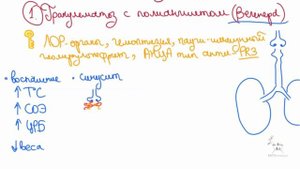 1. Гранулематоз с полиангиитом (Вегенера)
ЛОР-органы, гемоптизия, пауци-иммунный
гломерулонефрит, АНЦА тип анти PR3
• воспаление • синусит
↑ T°C
↑ СОЭ
↑ СРБ
↓ веса